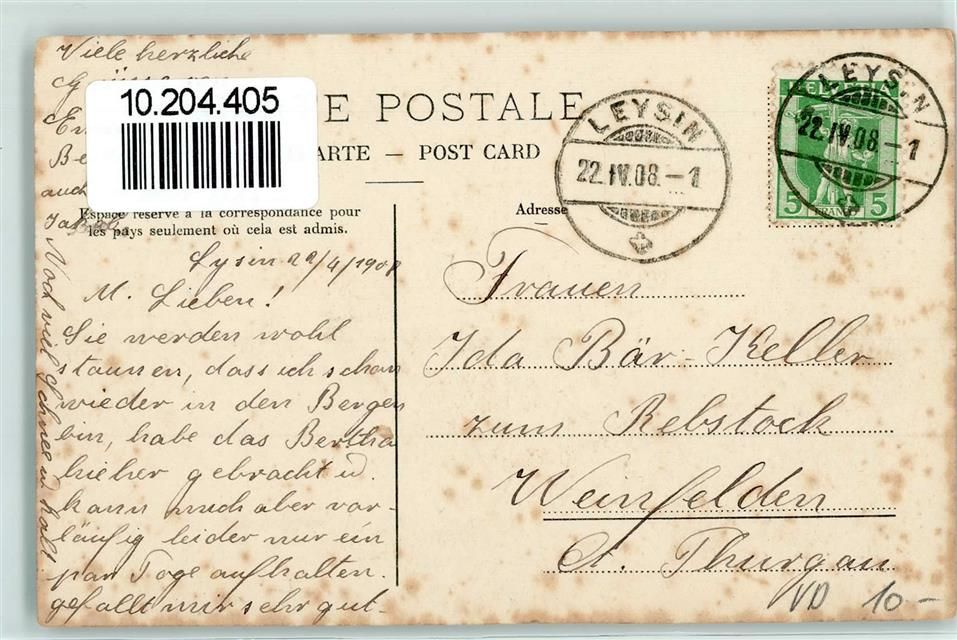 Viele herzliche
10.204.405
E POSTALE
ARTE — POST CARD
auch
Espace réservé à la correspondance pour
les pays seulement où cela est admis.
Adresse
Lysin 22/4/1908
M. Lieben!
Sie werden wohl
staunen, dass ich schon
wieder in den Bergen
bin, habe das Bertha
hieher gebracht u.
kann mich aber vor-
läufig leider nur ein
par Tage aufhalten.
gefällt mir sehr gut.
Noch viel Schnee u. kalt
LEYSIN
22.IV.08.–1
LEYSIN
22.IV.08.–1
5 FRANCO 5
Frauen
Ida Bär-Keller
zum Rebstock
Weinfelden
Ct. Thurgau
VD 10–